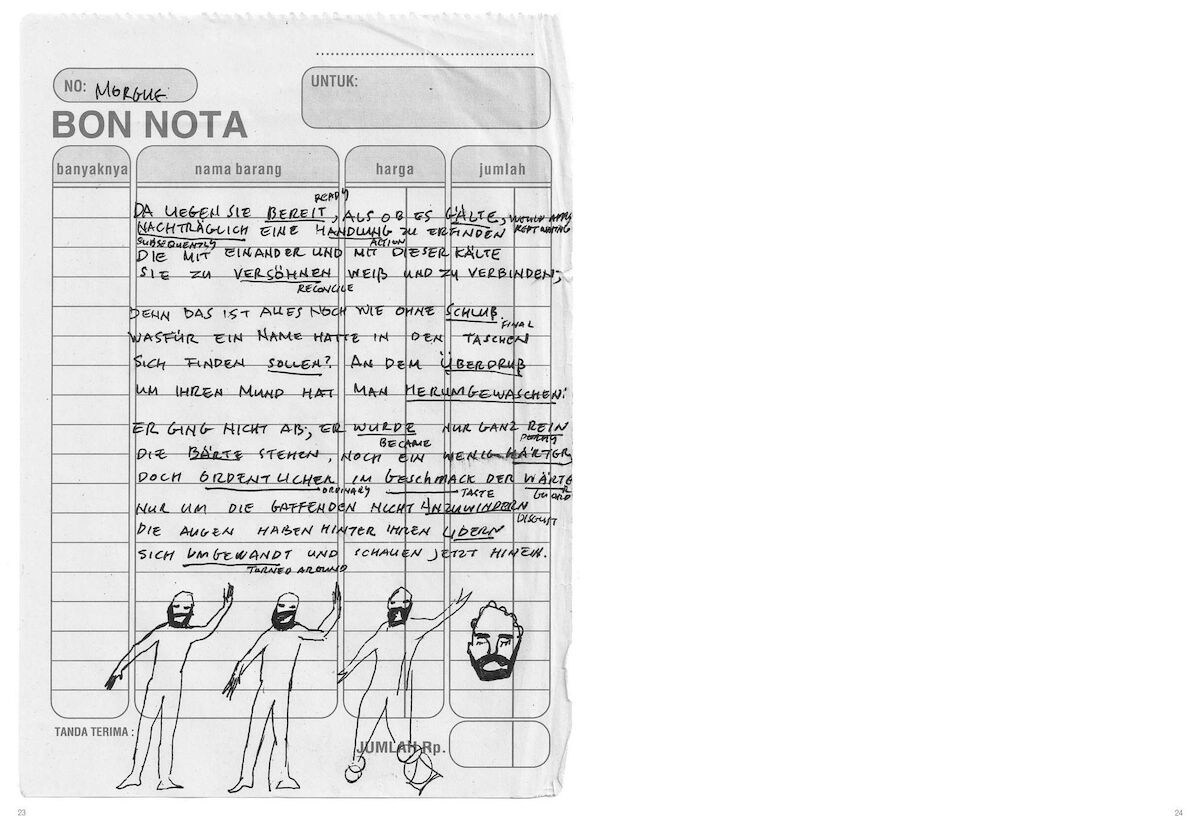 NO: MORGUE
UNTUK:
BON NOTA
banyaknya nama barang harga jumlah
READY
DA LIEGEN SIE BEREIT, ALS OB ES GÄLTE, WOULD APPLY
NACHTRÄGLICH EINE HANDLUNG ZU ERFINDEN
SUBSEQUENTLY ACTION
DIE MIT EINANDER UND MIT DIESER KÄLTE
SIE ZU VERSÖHNEN WEIß UND ZU VERBINDEN;
RECONCILE
DENN DAS IST ALLES NOCH WIE OHNE SCHLUß.
FINAL
WASFÜR EIN NAME HATTE IN DEN TASCHEN
SICH FINDEN SOLLEN? AN DEM ÜBERDRUß
UM IHREN MUND HAT MAN HERUMGEWASCHEN:
ER GING NICHT AB; ER WURDE NUR GANZ REIN
BECAME
DIE BÄRTE STEHEN, NOCH EIN WENIG HÄRTER
DOCH ORDENTLICHER IM GESCHMACK DER WÄRTER
ORDINARY TASTE GUARD
NUR UM DIE GAFFENDEN NICHT ANZUWIDERN
DISGUST
DIE AUGEN HABEN HINTER IHREN LIDERN
SICH UMGEWANDT UND SCHAUEN JETZT HINEIN.
TURNED AROUND
TANDA TERIMA:
JUMLAH Rp.
23
24